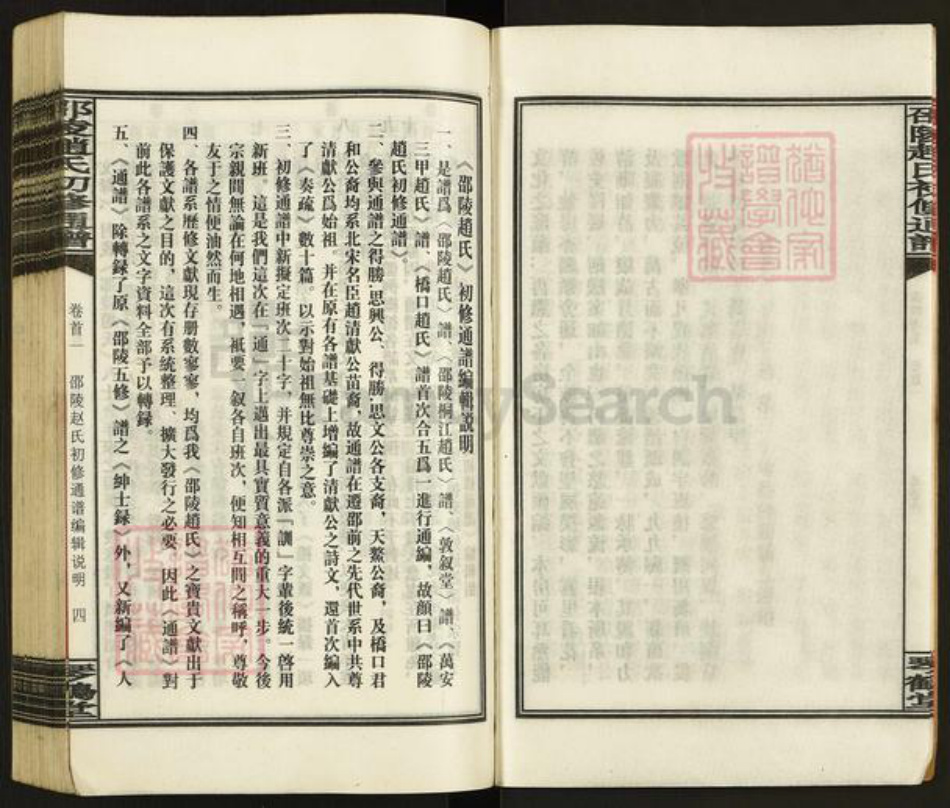 《邵陵趙氏》初修通譜編輯説明
一、是譜爲《邵陵趙氏》譜、《邵陵桐江趙氏》譜、《敦叙堂》譜、《萬安
三甲趙氏》譜、《橋口趙氏》譜首次合五爲一進行通編，故顔曰《邵陵
趙氏初修通譜》
二、參與通譜之得勝.思興公、得勝.思文公各支裔，天鰲公裔，及橋口君
和公裔均系北宋名臣趙清獻公苗裔，故通譜在遷邵前之先代世系中共尊
清獻公爲始祖。并在原有各譜基礎上增編了清獻公之詩文，還首次編入
了《奏疏》數十篇。以示對始祖無比尊崇之意。
三、初修通譜中新擬定班次二十字，并規定自各派「訓」字輩後統一啓用
新班。這是我們這次在「通」字上邁出最具實質意義的重大一步。今後
宗親間無論在何地相遇，祇要一叙各自班次，便知相互間之稱呼，尊敬
友于之情便油然而生。
四、各譜系歷修文獻現存册數寥寥，均爲我《邵陵趙氏》之寶貴文獻出于
保護文獻之目的，這次有系統整理、擴大發行之必要。因此《通譜》對
前此各譜系之文字資料全部予以轉録。
五、《通譜》除轉録了原《邵陵五修》譜之《紳士録》外，又新編了《人
卷首一 邵陵赵氏初修通谱编辑说明 四
邵陵趙氏初修通譜
琴鶴堂